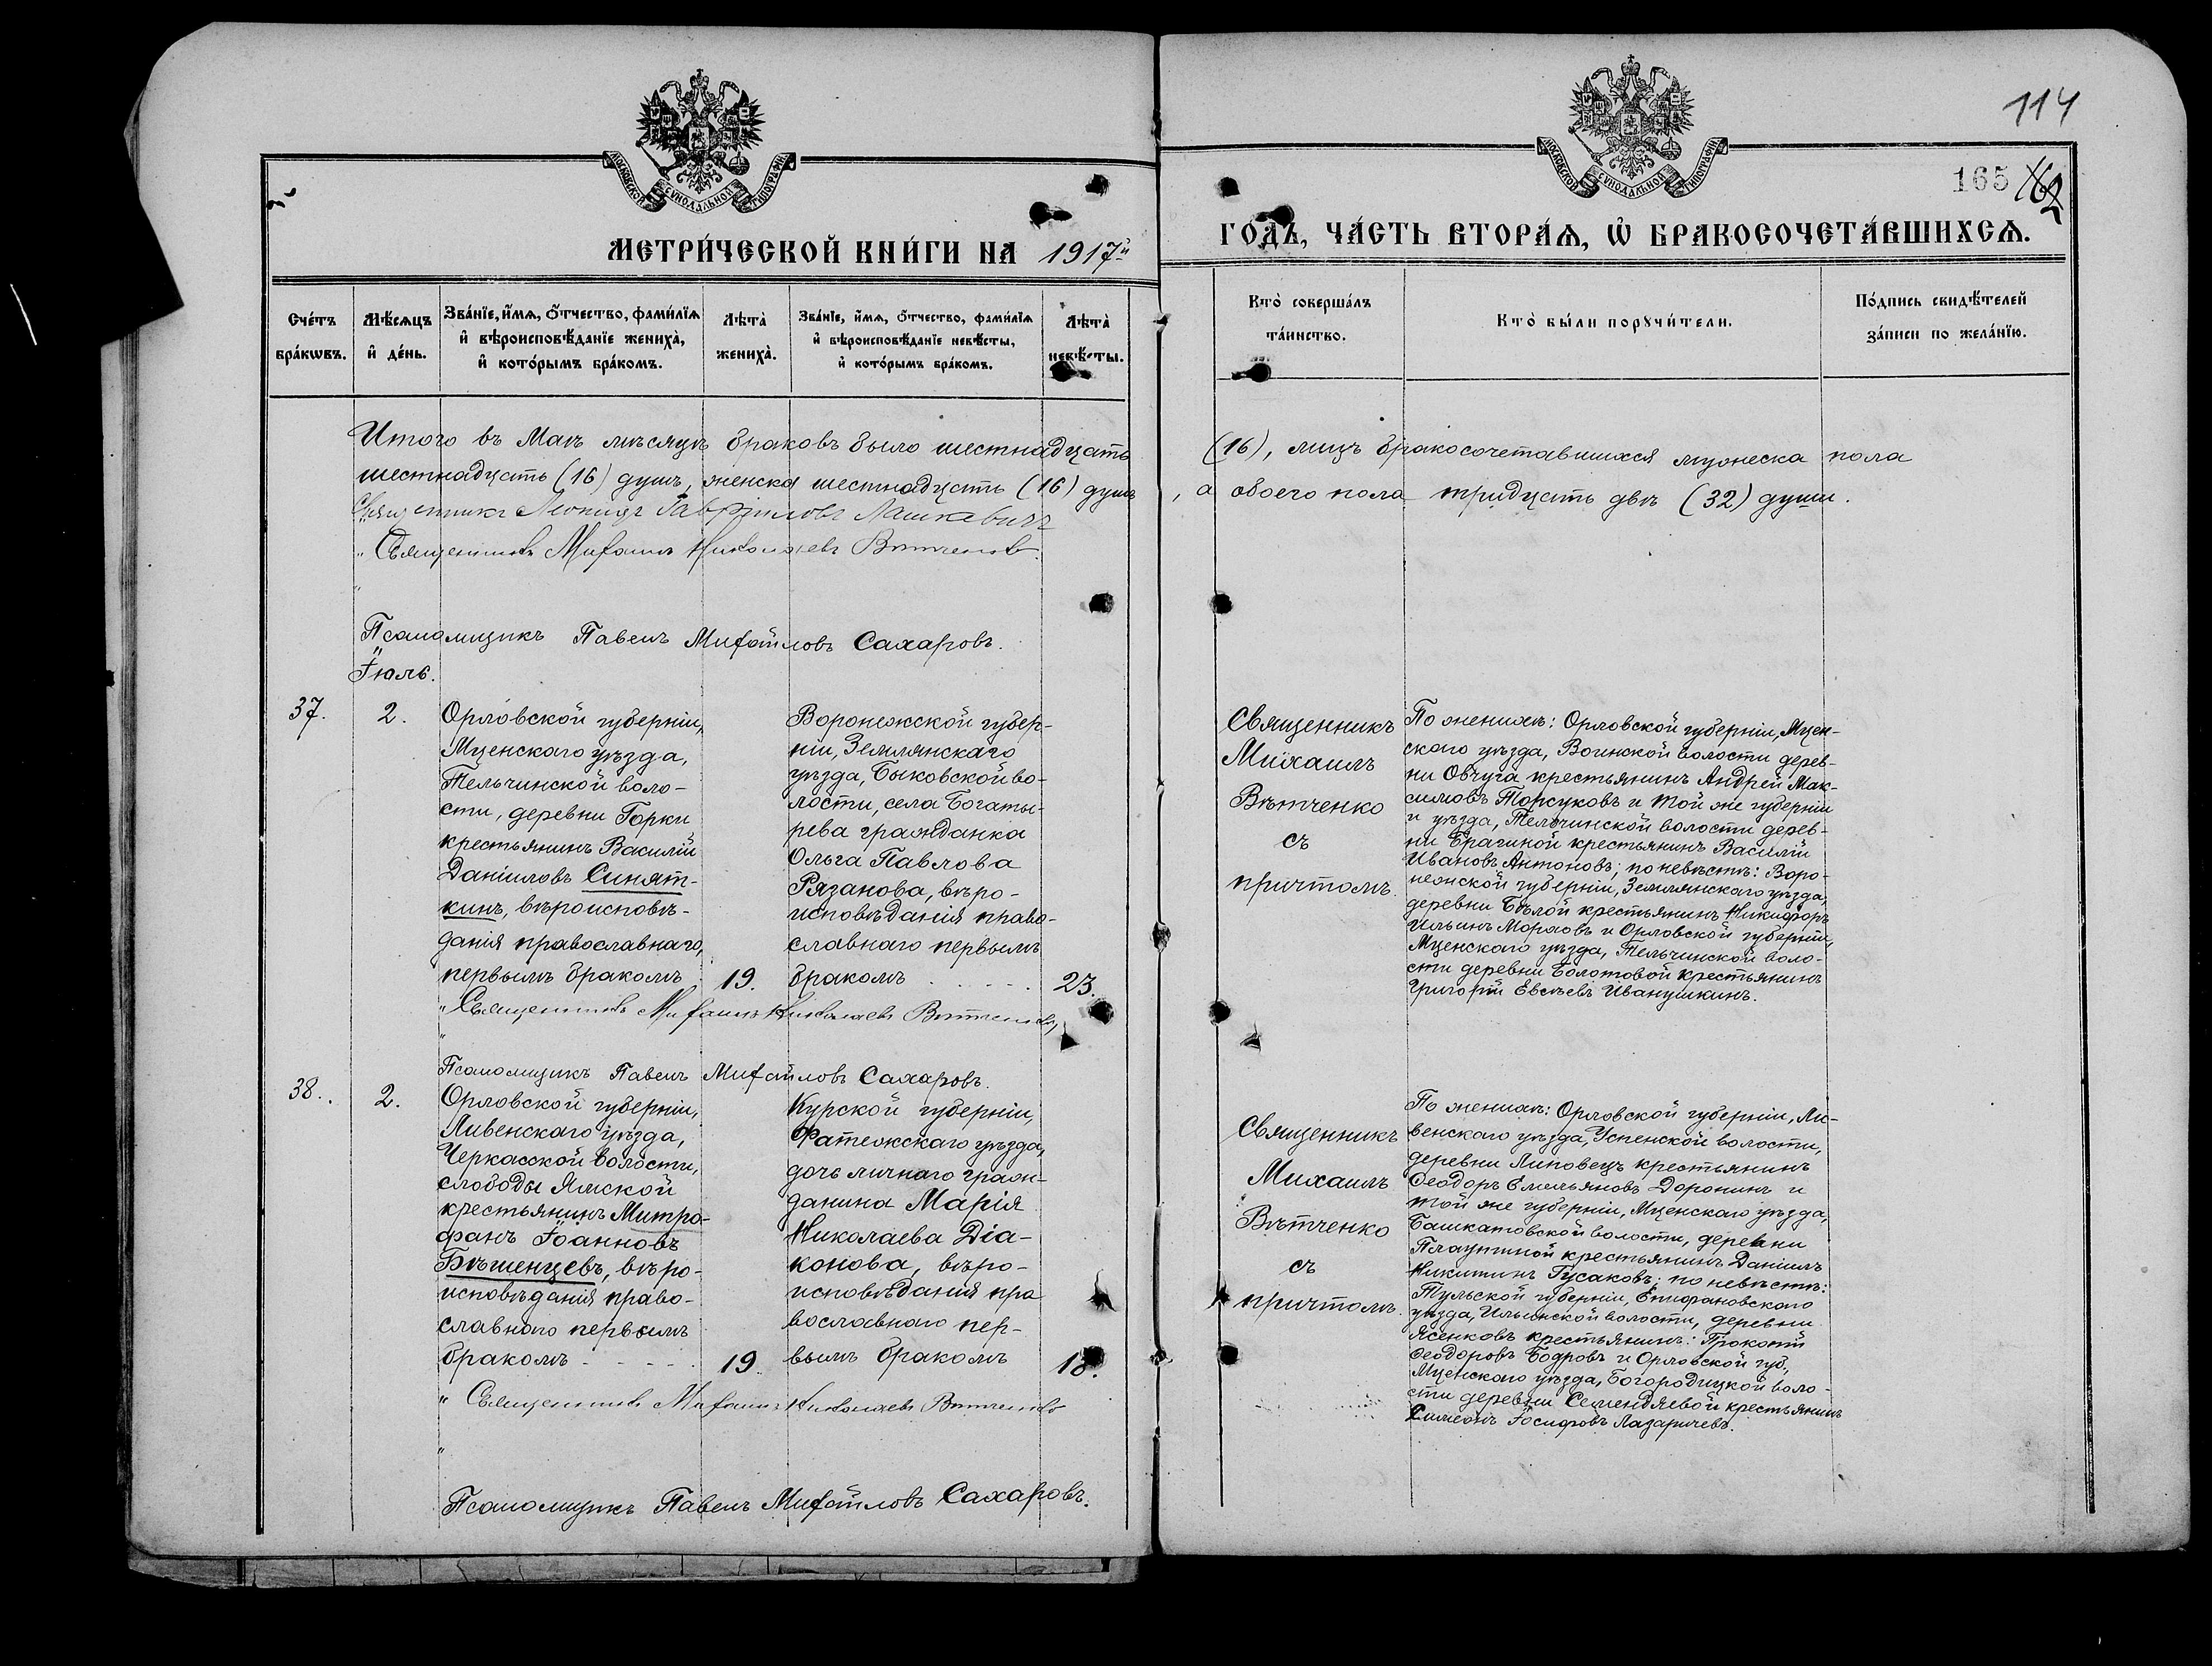 114
165 162
МОСКОВСКОЙ СѴНОДАЛЬНОЙ ТИПОГРАФІИ
МОСКОВСКОЙ СѴНОДАЛЬНОЙ ТИПОГРАФІИ
МЕТРИ́ЧЕСКОЙ КНИ́ГИ НА 1917й
ГОДЪ, ЧА́СТЬ ВТОРА́Ѧ, Ѡ҆ БРАКОСОЧЕТА́ВШИХСѦ.
Сче́тъ бра́кѡвъ.
Мѣ́сѧцъ и҆ де́нь.
Зва́нїе, и҆́мѧ, ѻ҆́тчество, фами́лїѧ
и҆ вѣроисповѣ́данїе жениха̀,
и҆ кото́рымъ бра́комъ.
Лѣта̀ жениха̀.
Зва́нїе, и҆́мѧ, ѻ҆́тчество, фами́лїѧ
и҆ вѣроисповѣ́данїе невѣ́сты,
и҆ кото́рымъ бра́комъ.
Лѣта̀ невѣ́сты.
Кто̀ соверша́лъ
та́инство.
Кто̀ бы́ли порꙋчи́тели.
По́дпись свидѣ́телей
за́писи по жела́нїю.
Итого въ Маѣ мѣсяцѣ браковъ было шестнадцать (16), лицъ бракосочетавшихся мужеска пола
шестнадцать (16) душъ, женска шестнадцать (16) душъ, а обоего пола тридцать двѣ (32) души.
Священникъ Леонидъ Гавріиловъ Лашкевичъ
Священникъ Михаилъ Николаевъ Вѣтченко
Псаломщикъ Павелъ Михайловъ Сахаровъ.
Іюль.
37.
2.
Орловской губерніи,
Мценскаго уѣзда,
Тельчинской воло-
сти, деревни Горки
крестьянинъ Василій
Даніиловъ Синят-
кинъ, вѣроисповѣ-
данія православнаго,
первымъ бракомъ
19.
Воронежской губер-
ніи, Землянскаго
уѣзда, Быковской во-
лости, села Богаты-
рева гражданка
Ольга Павлова
Рязанова, вѣро-
исповѣданія право-
славнаго первымъ
бракомъ
23.
Священникъ
Михаилъ
Вѣтченко
съ
причтомъ.
По женихѣ: Орловской губерніи, Мцен-
скаго уѣзда, Воинской волости дерев-
ни Овчуга крестьянинъ Андрей Мак-
симовъ Торсуковъ и той же губерніи
и уѣзда, Тельчинской волости дерев-
ни Брагиной крестьянинъ Василій
Ивановъ Антоновъ; по невѣстѣ: Воро-
нежской губерніи, Землянскаго уѣзда,
деревни Бѣлой крестьянинъ Никифоръ
Ильинъ и Орловской губерніи,
Мценскаго уѣзда, Тельчинской воло-
сти деревни Болотовой крестьянинъ
Григорій Евсѣевъ Иванушкинъ.
Священникъ Михаилъ Николаевъ Вѣтченко
Псаломщикъ Павелъ Михайловъ Сахаровъ.
38.
2.
Орловской губерніи,
Ливенскаго уѣзда,
Черкасской волости,
слободы Ямской
крестьянинъ Митро-
фанъ Іоанновъ
Бѣшенцевъ, вѣро-
исповѣданія право-
славнаго первымъ
бракомъ
19.
Курской губерніи,
Фатежскаго уѣзда,
дочь личнаго граж-
данина Марія
Николаева Діа-
конова, вѣро-
исповѣданія пра
вославнаго пер-
вымъ бракомъ
18.
Священникъ
Михаилъ
Вѣтченко
съ
причтомъ.
По женихѣ: Орловской губерніи, Ли-
венскаго уѣзда, Успенской волости,
деревни Липовецъ крестьянинъ
Ѳеодоръ Емельяновъ Доронинъ и
той же губерніи, Мценскаго уѣзда,
Башкатовской волости, деревни
Плаутиной крестьянинъ Даніилъ
Никитинъ Гусаковъ; по невѣстѣ:
Тульской губерніи, Епифановскаго
уѣзда, Ильинской волости, деревни
Ясенковъ крестьянинъ: Прокопій
Ѳеодоровъ Бодровъ и Орловской губ.,
Мценскаго уѣзда, Богородицкой воло-
сти деревни Семендяевой крестьянинъ
Симеонъ Іосифовъ Лазаричевъ.
Священникъ Михаилъ Николаевъ Вѣтченко
Псаломщикъ Павелъ Михайловъ Сахаровъ.